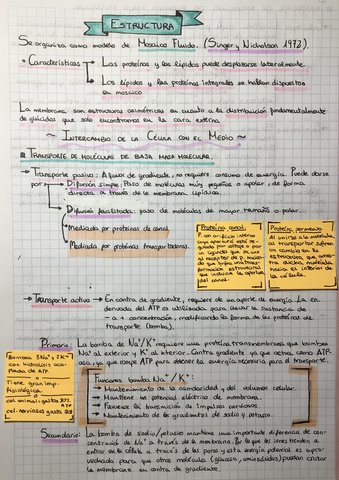 ESTRUCTURA
Se organiza como modelo de Mosaico Fluido. (Singer y Nicholson 1972).
• Características → Las proteínas y los lípidos puede desplazarse lateralmente.
→ Los lípidos y las proteínas integrales se hallan dispuestos
en mosaico
La membrana son estructuras asimétricas en cuanto a la distribución fundamentalmente
de glúcidos que solo encontramos en la cara externa.
~ INTERCAMBIO DE LA CÉLULA CON EL MEDIO ~
TRANSPORTE DE MOLÉCULAS DE BAJA MASA MOLECULAR.
→ Transporte pasivo: A favor de gradiente, no requiere consumo de energía. Puede darse
por: → Difusión simple: Paso de moléculas muy pequeñas o apolar, de forma
directa a través de la membrana lipídica.
→ Difusión facilitada: paso de moléculas de mayor tamaño o polar.
Mediada por proteínas de canal.
Mediada por proteínas transportadoras.
Proteína canal:
Proteína permeasa:
Al unirse a la molécula
al transportar sufren
un cambio en la
estructura que
molécula
hacia el interior de
la célula.
→ Transporte activo → En contra de gradiente, requiere de un aporte de energía. La en.
derivada del ATP es utilizada para mover la sustancia de
- a + concentración, modificando la forma de las proteínas de
transporte (bomba).
Primario: La bomba de Na⁺/K⁺ requiere una proteína transmembrana que bombea
Na⁺ al exterior y K⁺ al interior. Contra gradiente ya que actúa como ATP-
asa, ya que rompe ATP para obtener la energía necesaria para el transporte.
Bombea 3Na⁺ y 2K⁺
con hidrólisis aco-
plada de ATP.
Tiene gran imp.
fisiológica.
cel. animal: gasta
cel. nerviosa: gasta
Funciones bomba Na⁺/K⁺:
Mantenimiento de la osmolaridad y del volumen celular.
Mantiene un potencial eléctrico de membrana.
Favorece la transmisión de impulsos nerviosos.
Mantenimiento de gradientes de sodio y potasio.
Secundario: La bomba de sodio/potasio mantiene una importante diferencia de con-
centración de Na⁺ a través de la membrana. Por lo que los iones tienden a
entrar en la célula a través de los poros y esta energía potencial es apro-
vechada para que otras molécula (glucosa, aminoácidos) puedan cruzar
la membrana en contra de gradiente.